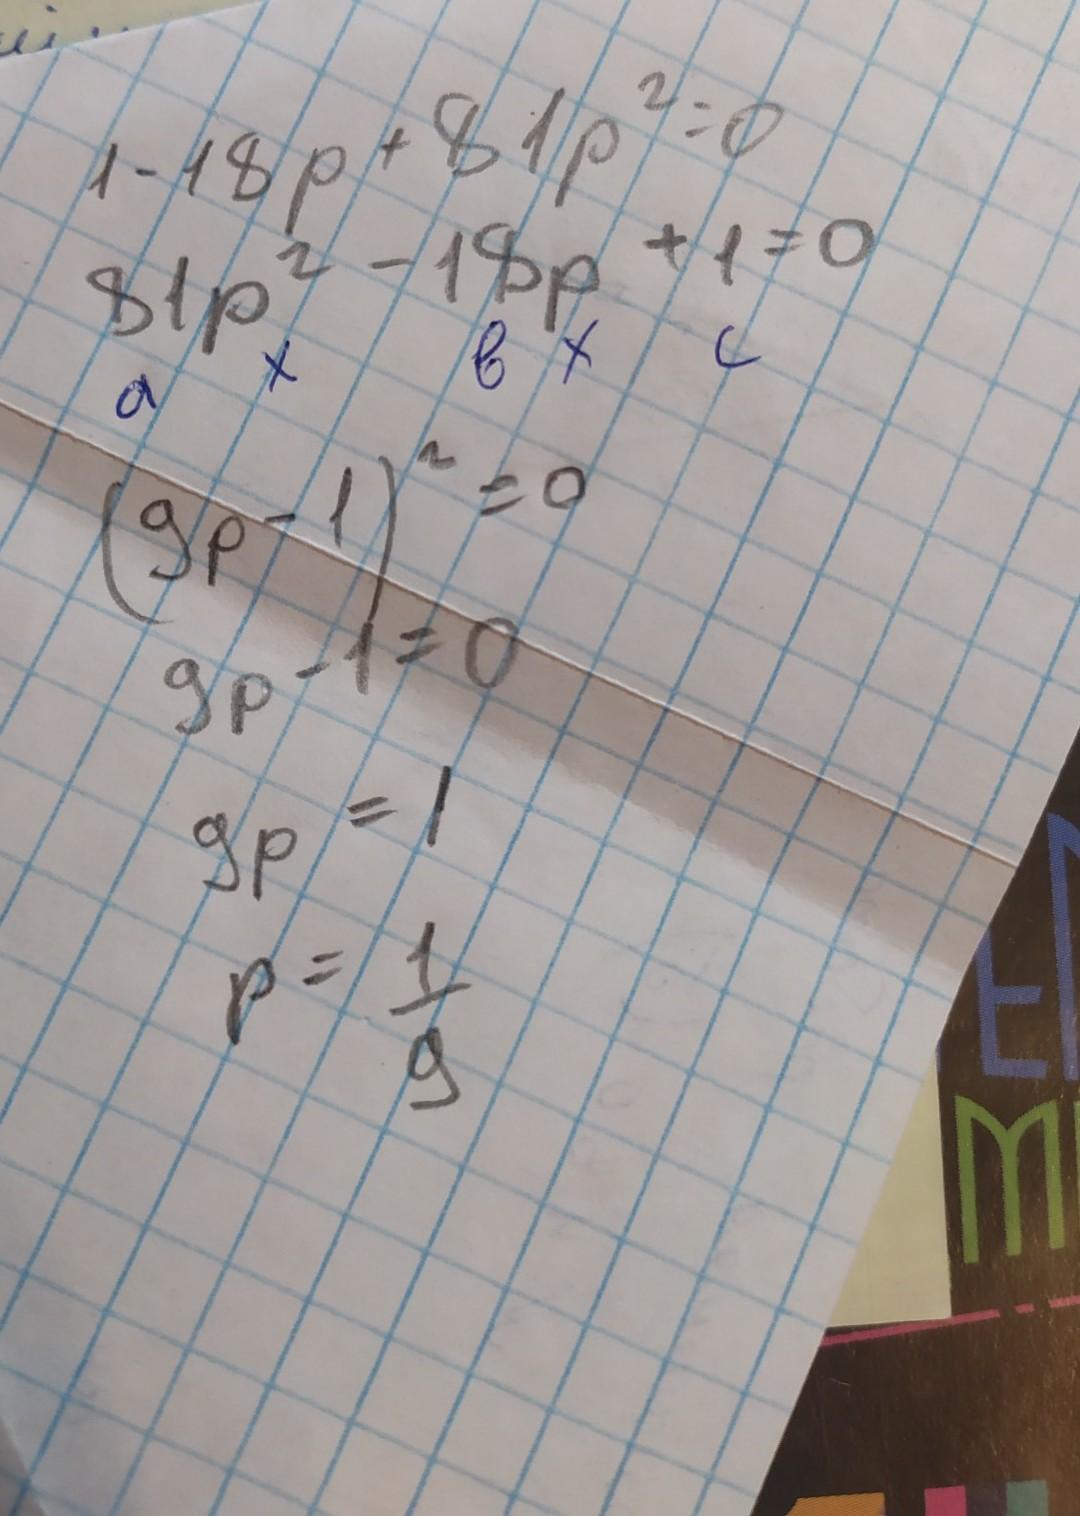 1-18p+81p²=0
81p²-18p+1=0
a x в x c
(9p-1)²=0
9p-1=0
9p=1
p=1/9